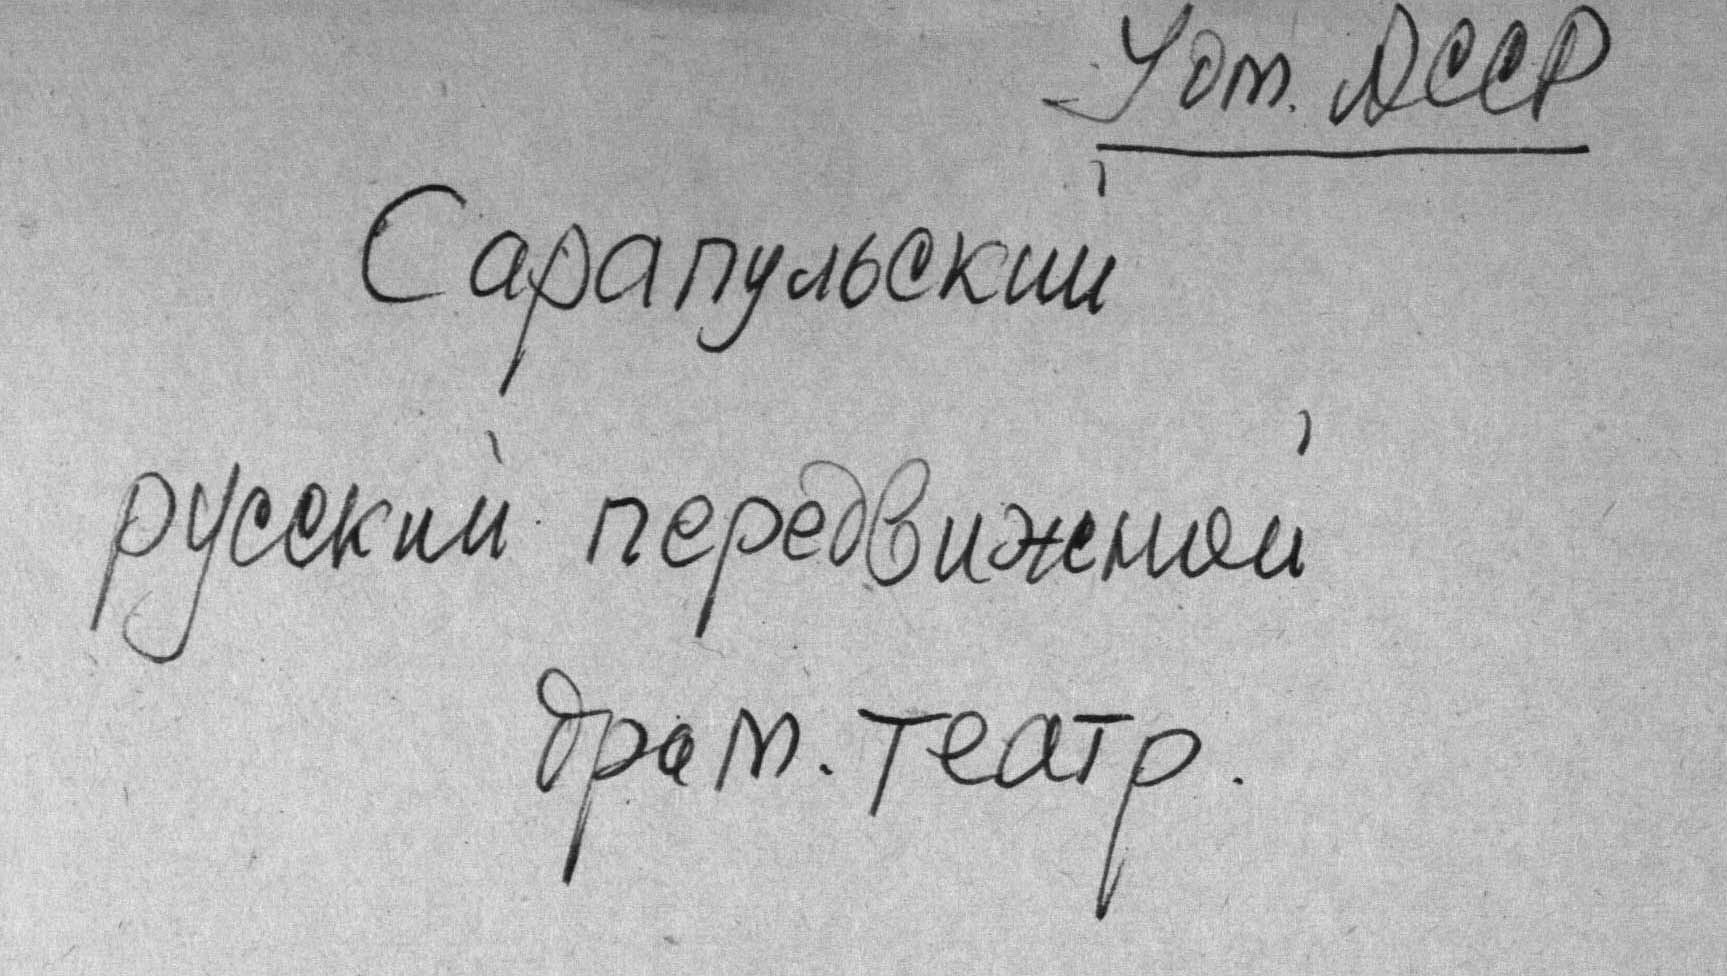 Удм. АССР
Сарапульский
русский передвижной
драм. театр.